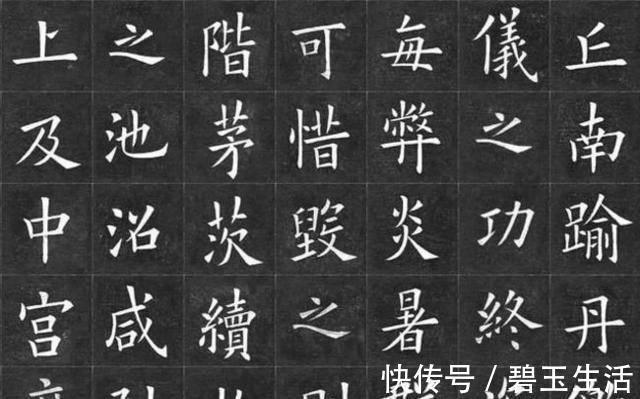 丘南踰丹
儀之功終
每弊炎暑
可惜毀之
階茅茨續
之池沼咸
上及中宮
快传号 / 碧玉生活